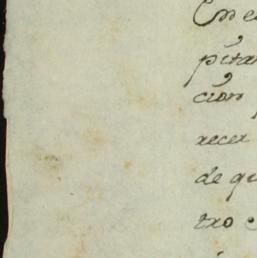 En e
pita
cion
recer
de qu
txo